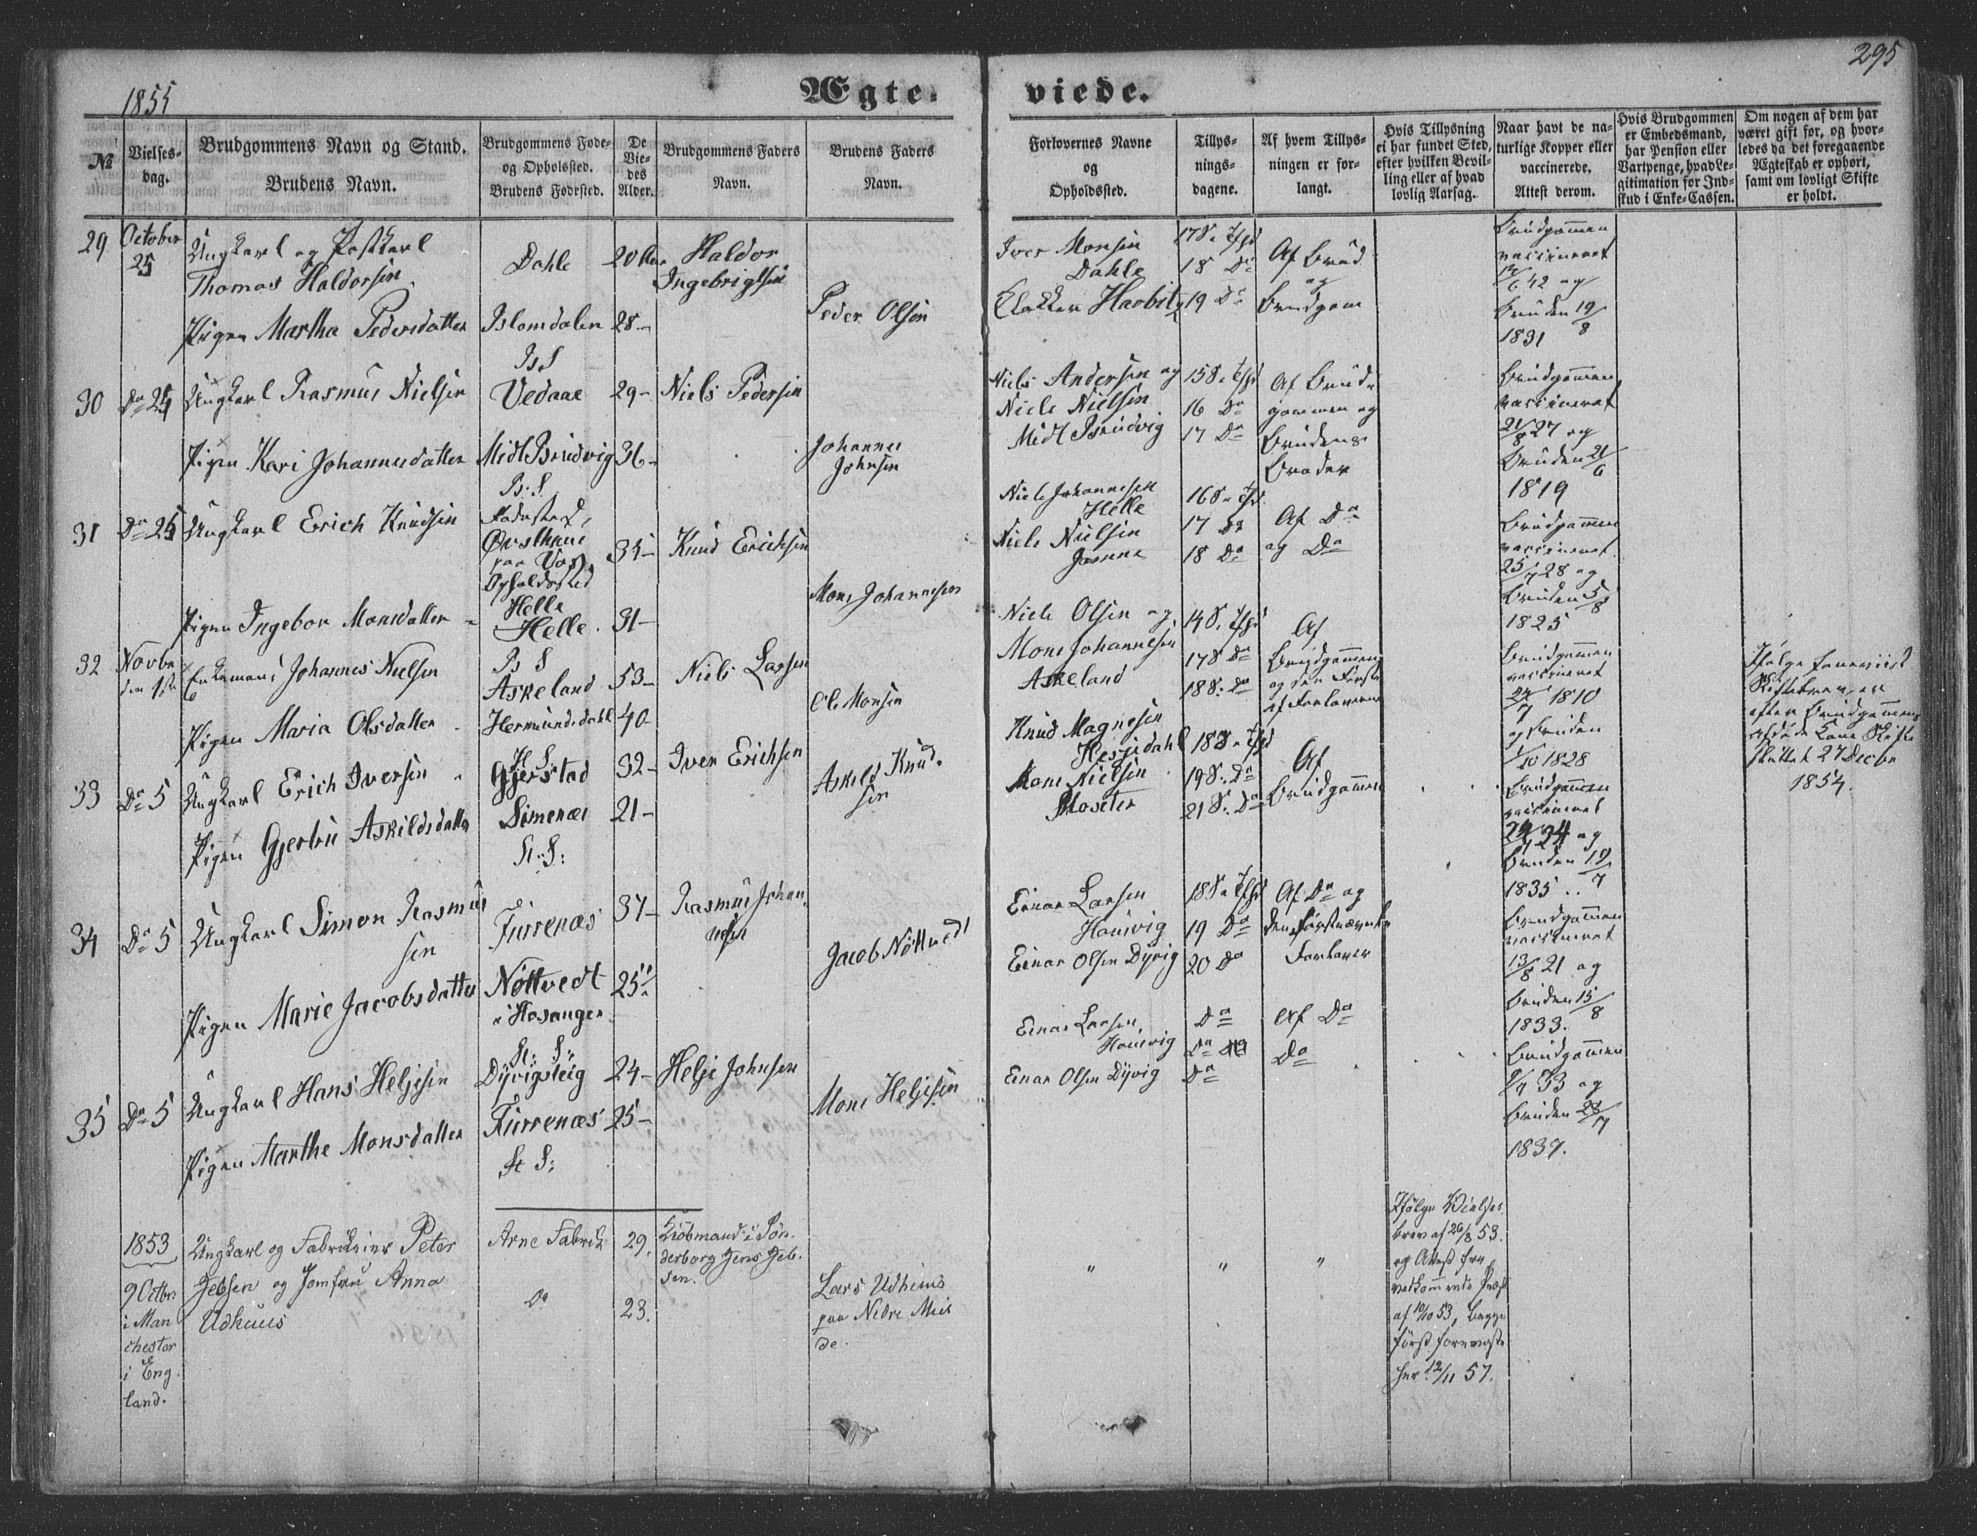 1855
Ægte-
viede.
295
№
Vielses-
dag.
Brudgommens Navn og Stand.
Brudens Navn.
Brudgommens Føde-
og Opholssted.
Brudens Fødested.
De
Vie-
des
Alder.
Brudgommens Faders
Navn.
Brudens Faders
Navn.
Forlovernes Navne
og
Opholdssted.
Tillys-
nings-
dagene.
Af hvem Tillys-
ningen er for-
langt.
Hvis Tillysning
ei har fundet Sted,
efter hvilken Bevil-
ling eller af hvad
lovlig Aarsag.
Naar havt de na-
turlige Kopper eller
vaccinerede.
Attest derom.
Hvis Brudgommen
er Embedsmand,
har Pension eller
Vartpenge, hvad Le-
gitimation for Ind-
skud i Enke-Cassen.
Om nogen af dem har
været gift før, og hvor-
ledes da det foregaaende
Ægteskab er ophørt,
samt om lovligt Skifte
er holdt.
29
October
25
Ungkarl og Postkarl
Thomas Haldorsen
Dahle
20
Haldor
Ingebrigtsen
Pigen Martha Pedersdatter
Islomdalen
28
Peder Olsen
Iver Monsen
Dahle
Klokker Haobitz
18 Do
19 Do
Af Brud
og
Brudgom
Brudgommen
vaccineret
42 og
Bruden 19/8
1831
30
Do 25
Ungkarl Rasmus Nielsen
B. S
Vedaae
29
Niels Pedersen
Pigen Kari Johannesdatter
Midt Brudvig
36
Johannes
Johnsen
Niels Andersen og
Niels Nielsen
Midt Brudvig
16 Do
17 Do
Af Brud-
gommen og
Brudens
Broder
Brudgommen
vaccineret
21/8 27 og
Bruden 21/6
1819
31
Do 25
Ungkarl Erich Knudsen
B. S.
Fødested,
paa Vos
Opholdssted
Helle
35
Knud Erichsen
Pigen Ingebor Monsdatter
Helle
31
Mons Johannesen
Niels Johannesen
Helle
Niels Nielsen
17 Do
18 Do
Af Do
og Do
Brudgommen
vaccineret
25/7 28 og
Bruden 5/8
1825
32
Novbr
den 1ste
Enkemand Johannes Nielsen
B S
Askeland
53
Niels Larsen
Pigen Maria Olsdatter
Hermundsdahl
40
Ole Monsen
Niels Olsen og
Mons Johannesen
Askeland
Af
Brudgommen
og den første
af Forloverne
Brudgommen
vaccineret
24/7 1810
og Bruden
1/10 1828
Ifølge foreviist
Skiftebrev er
efter Brudgommens
afdøde Kone Skifte
sluttet 27 Decbr
1854.
33
Do 5
Ungkarl Erich Iversen
H. S.
Gjerstad
32
Iver Erichsen
Pigen Gjertru Askildsdatter
Simenes
21
Askild Knud-
sen
Knud Magnesen
Hesjedahl
Mons Nielsen
Moseter
Af
Brudgommen
Brudgommen
vaccineret
34 og
Bruden 19/7
1835
34
Do 5
Ungkarl Simon Rasmus
sen
St: S:
Furrenæs
37
Rasmus Johan-
nesen
Pigen Marie Jacobsdatter
Nöttvedt
i Hosanger
25
Jacob Nöttvedt
Einar Larsen
Houvig
Einar Olsen Dyvig
19 Do
20 Do
Af Do og
den førstnævnte
Forlover
Brudgommen
vaccineret
13/8 21 og
Bruden 15/8
1833.
35
Do 5
Ungkarl Hans Heljesen
St: S:
Dyvigsteig
24
Helje Johnsen
Pigen Marthe Monsdatter
Furrenæs
25
St S:
Mons Heljesen
Einar Larsen
Houvig
Einar Olsen Dyvig
Do
Do
Do
Af Do
Do
Brudgommen
33 og
Bruden 28/7
1837.
1853
9 Octbr
i Man
chester
i Eng
land.
Ungkarl og Fabrikeier Peter
Jebsen og Jomfru Anna
Udhuus
Arne Fabrik
Do
29.
23.
Kiöbmand i Søn-
derborg Jens Jeb-
sen.
Lars Udhuus
paa Nedre Mjel
de.
"
"
"
Ifølge Vielses-
brev af 26/8 53.
og Attest fra
vedkommende Præst
af 10/10 53, begge
først foreviste
her 12/11 57.